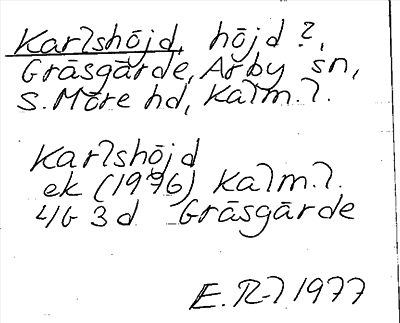 Karlshöjd, höjd?,
Gräsgärde, Arby sn,
S. Möre hd, Kalm. l.
Karlshöjd
ek (1976) Kalm. l.
4G 3d Gräsgärde
E. R-l 1977